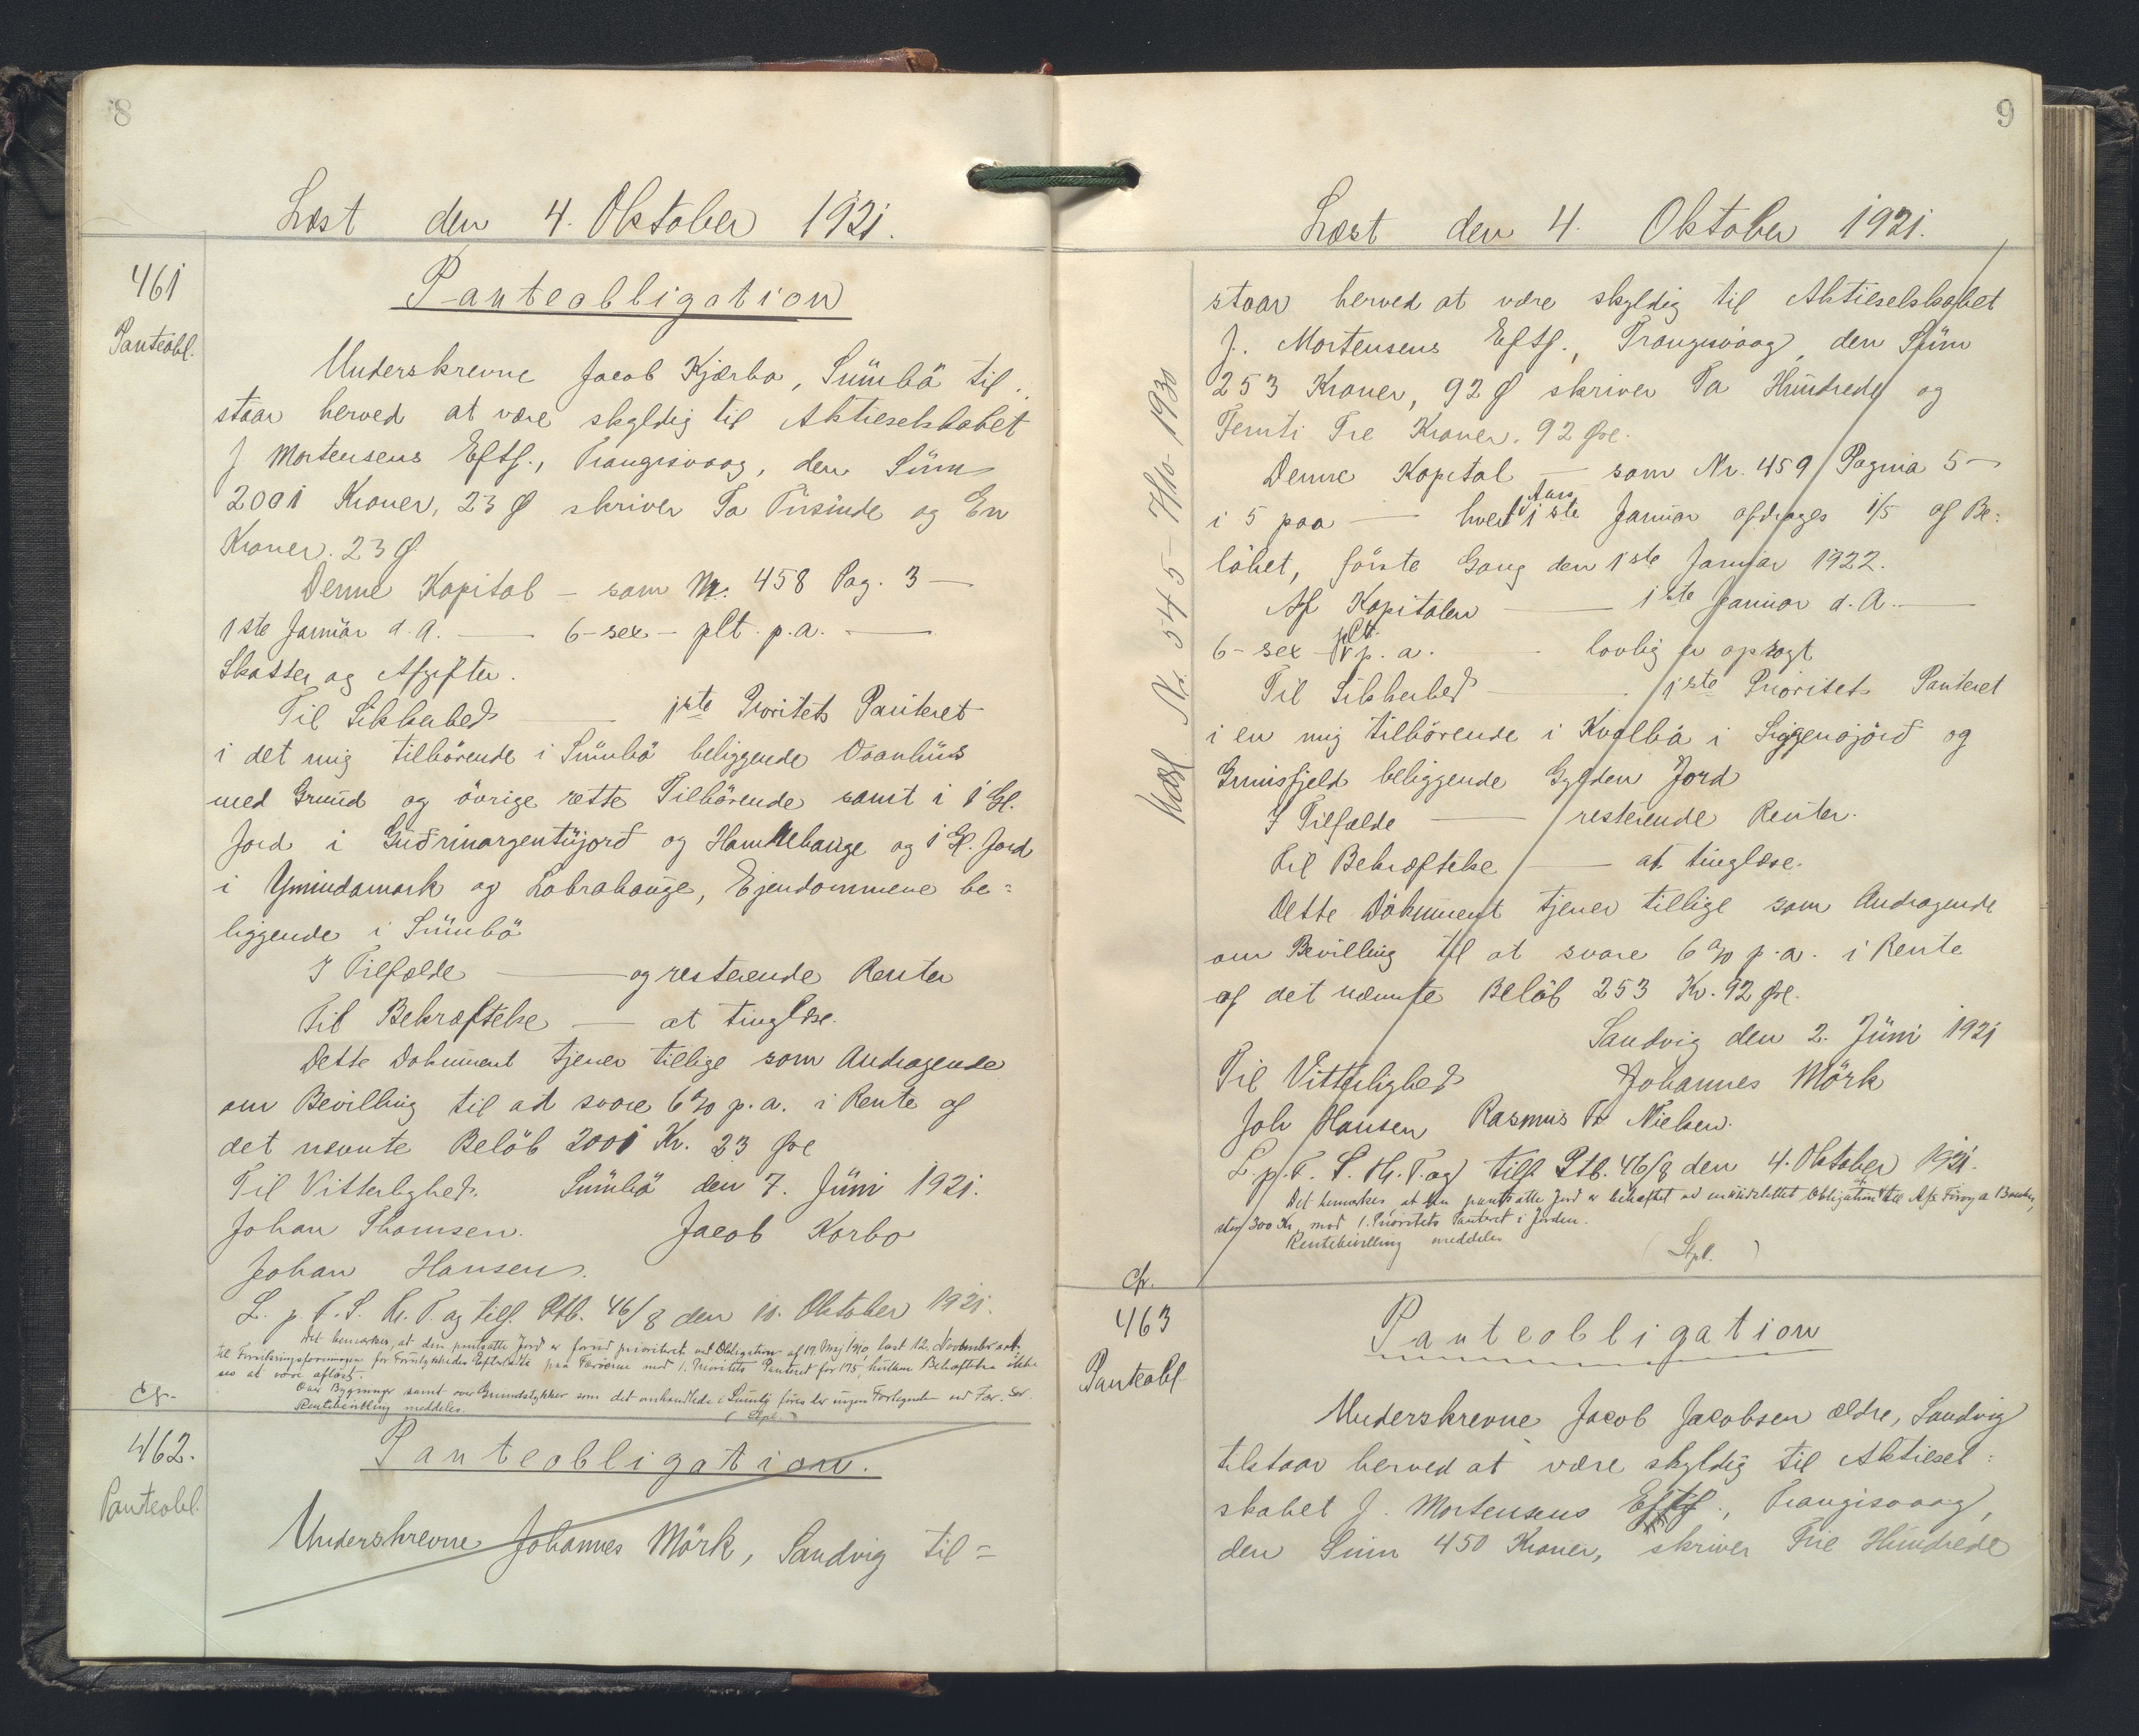 8
Læst den 4. Oktober 1921.
461
Panteobl.
Panteobligation
Underskrevne Jacob Kjærbo, Sümbö til
staar herved at være skyldig til Aktieselskabet
J Mortensens Eftf., Trangisvaag, den Süm
2001 Kroner, 23 Ø skriver To Tusinde og En
Kroner. 23 Ø.
Denne Kapital – som Nr. 458 Pag. 3 —
1ste Januar d. A. — 6 – sex – pCt. p.a. —
Skatter og Afgifter.
Til Sikkerhed — 1ste Prioritets Panteret
i det mig tilhörende i Sümbö beliggende Vaanhüs
med Grund og övrige rette Tilhörende samt i 1 Gl.
Jord i og og 1 Gl. Jord
i og Labrahauge, Ejendommene be=
liggende i Sümbö
I Tilfælde — og resterende Renter
Til Bekræftelse — at tinglæse.
Dette Dokument tjener tillige som Andragende
om Bevilling til at svare 6 % p.a. i Rente af
det nævnte Belöb 2001 Kr. 23 Øre
Til Vitterlighed. Sümbö den 7. Jüni 1921.
Johan Thomsen. Jacob Korbo
Johan Hansen.
L. p. T. S. Kr. T. og tilf. Ptb. 46/8 den Oktober 1921.
Det bemærkes, at den pantsatte Jord er forud prioriteret ved Obligation af 19. Maj 1910, læst 12. November
til Forsikringsforeningen for Forulykkedes Efterladte paa Færöerne med 1. Prioritets Panteret for 175, hvilken Behæftelse ikke
ses at være aflæst.
Over Bygninger samt over Grundstykker som det omhandlede i Sumbö föres der ingen Fortegnelse ved Fær. Sor.
Rentebevilling meddeles.
(Stpl.)
Cfr.
462.
Panteobl.
Panteobligation.
Underskrevne Johannes Mörk, Sandvig til=
9
Læst den 4. Oktober 1921.
staar herved at være skyldig til Aktieselskabet
J. Mortensens Eftf., Trangisvaag, den Süm
253 Kroner, 92 Ø skriver To Hundrede og
Femti Tre Kroner. 92 Øre.
Denne Kapital — som Nr. 459 Pagina 5 —
i 5 paa — hvert Aars 1ste Januar afdrages 1/5 af Be=
löbet, förste Gang den 1ste Januar 1922.
Af Kapitalen — 1ste Januar d. A. —
6 – sex – pCt. p. a. — lovlig er opsagt
Til Sikkerhed — 1ste Prioritets Panteret
i en mig tilhörende i Kvalbö i og
beliggende Gylden Jord
I Tilfælde — resterende Renter.
Til Bekræftelse — at tinglæse.
Dette Dokument tjener tillige som Andragende
om Bevilling til at svare 6 % p.a. i Rente
af det nævnte Belöb 253 Kr. 92 Øre.
Sandvig den 2. Jüni 1921
Til Vitterlighed Johannes Mörk
Joh Hansen Rasmus Nielsen.
L. p. T. S. Kr. T. og tilf. Ptb. 46/8 den 4. Oktober 1921.
Det bemærkes, at den pantsatte Jord er behæftet ved en udslettet Obligation til A/s Föroya Banki,
300 Kr. mod 1. Prioritets Panteret i Jorden.
Rentebevilling meddeles
(Stpl.)
Kasl Nr. 545 – 7/10 – 1930
Cfr.
463
Panteobl
Panteobligation
Underskrevne Jacob Jacobsen ældre, Sandvig
tilstaar herved at være skyldig til Aktiesel=
skabet J. Mortensens Eftf., Trangisvaag,
den Süm 450 Kroner, skriver Fire Hündrede